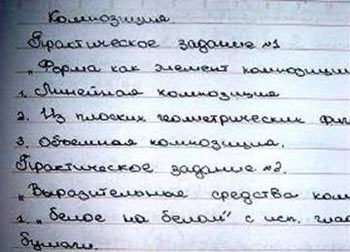 Композиция
Практическое задание №1
„Форма как элемент композиции
1. Линейная композиция
2. Из плоских геометрических фиг
3. Объемная композиция.
Практическое задание №2.
„Выразительные средства ком
1. „белое на белом" с исп. гла
бумаги.